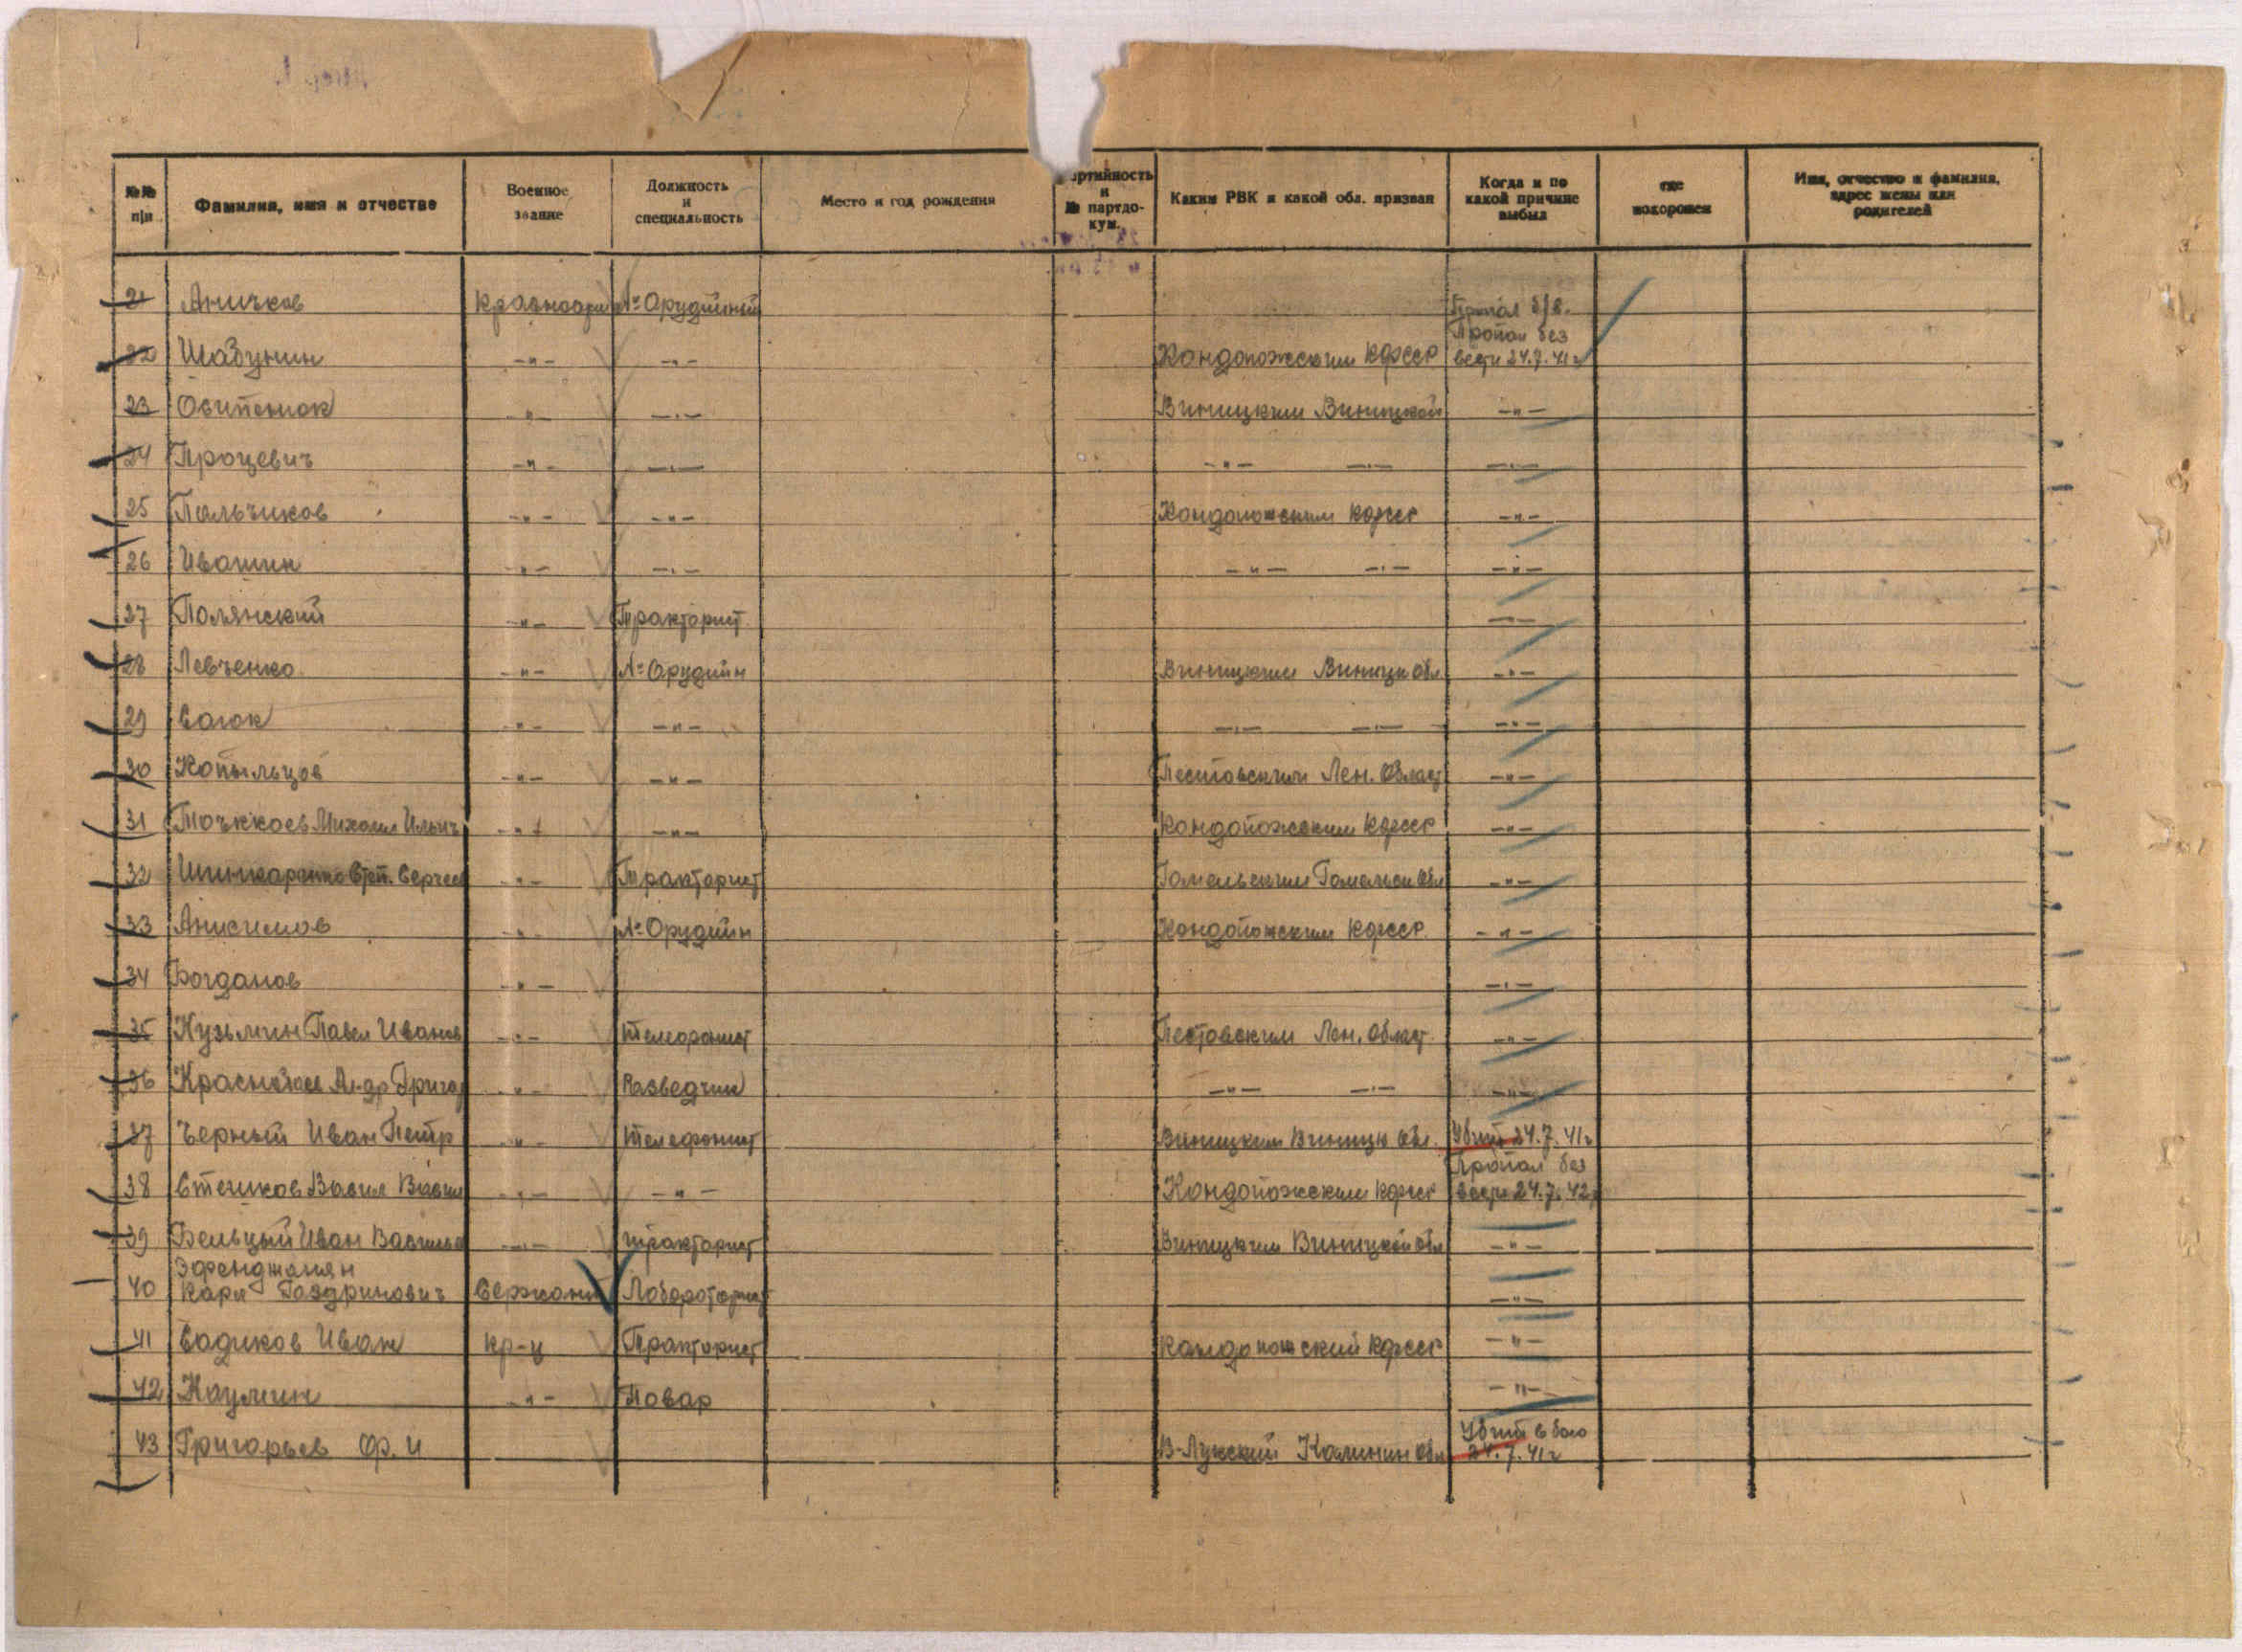 №№ п/п | Фамилия, имя и отчество | Военное звание | Должность и специальность | Место и год рождения | артийность и № партдокум. | Каким РВК и какой обл. призван | Когда и по какой причине выбыл | где похоронен | Имя, отчество и фамилия, адрес жены или родителей
21 Аничков Красноарм №-Орудийный Пропал б/в.
22 Шабунин -"- -"- Кондопожским КФССР Пропал без вести 24.7.41г
23 Осипенюк -"- -"- Виницким Виницкой -"-
24 Процевич -"- -"- -"- -"- -"-
25 Пальчиков -"- -"- Кондопожским КФССР -"-
26 Ивашин -"- -"- -"- -"- -"-
27 Полянский -"- Тракторист -"-
28 Левченко -"- №-Орудийн Виницким Виницк обл -"-
29 -"- -"- -"- -"- -"-
30 Копыльцов -"- -"- Пестовским Лен. Област -"-
31 Михаил Ильич -"- -"- Кондопожским КФССР -"-
32 Шинкаренко Степ. Сергеев -"- Тракторист Гомельским Гомельск обл -"-
33 Анисимов -"- №-Орудийн Кондопожским КФССР -"-
34 Богданов -"- -"-
35 Кузьмин Павел Иванов -"- телефонист Пестовским Лен. Област -"-
36 Ал-др Григор -"- Разведчик -"- -"- -"-
37 Черный Иван Петр -"- телефонист Виницким Виницк обл. Убит 24.7.41г
38 Стешков Васил Васил -"- -"- Кондопожским КФССР Пропал без вести 24.7.42г
39 Бельцый Иван Василье -"- тракторист Виницким Виницкой обл -"-
40 Эфенджанян Карл Сержант Лабороторист -"-
41 Садиков Иван кр-ц Тракторист Кандопошский КФССР -"-
42 Наумин -"- Повар -"-
43 Григорьев Ф. И В-Лукский Калинин обл Убит в бою 24.7.41г